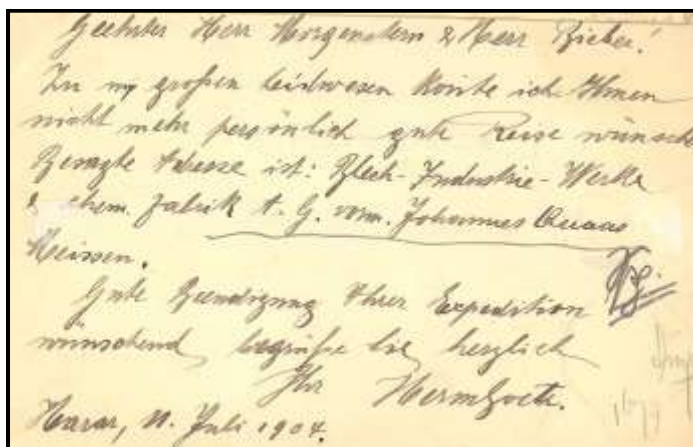 Geehrter Herr Morgenstern & Herr Bieber!
Zu my großen Leidwesen konte ich Ihnen
nicht mehr persönlich gute Reise wünsche
Besagte Adresse ist: Blech-Industrie-Werke
& chem. Fabrik A. G. vorm. Johannes Quaas
Meissen.
Gute Beendigung Ihrer Expedition
wünschend, begrüße Sie herzlich
Ihr
Harar, 11. Juli 1904.